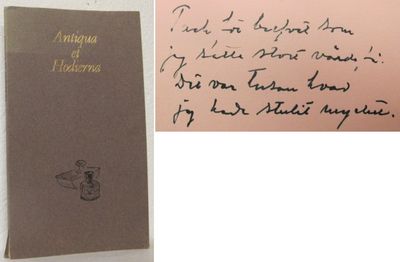 Antiqua
et
Hodierna
Tack för brefvet som
jag sätte stort värde
Det var tusan hvad
jag hade stulit mycket.